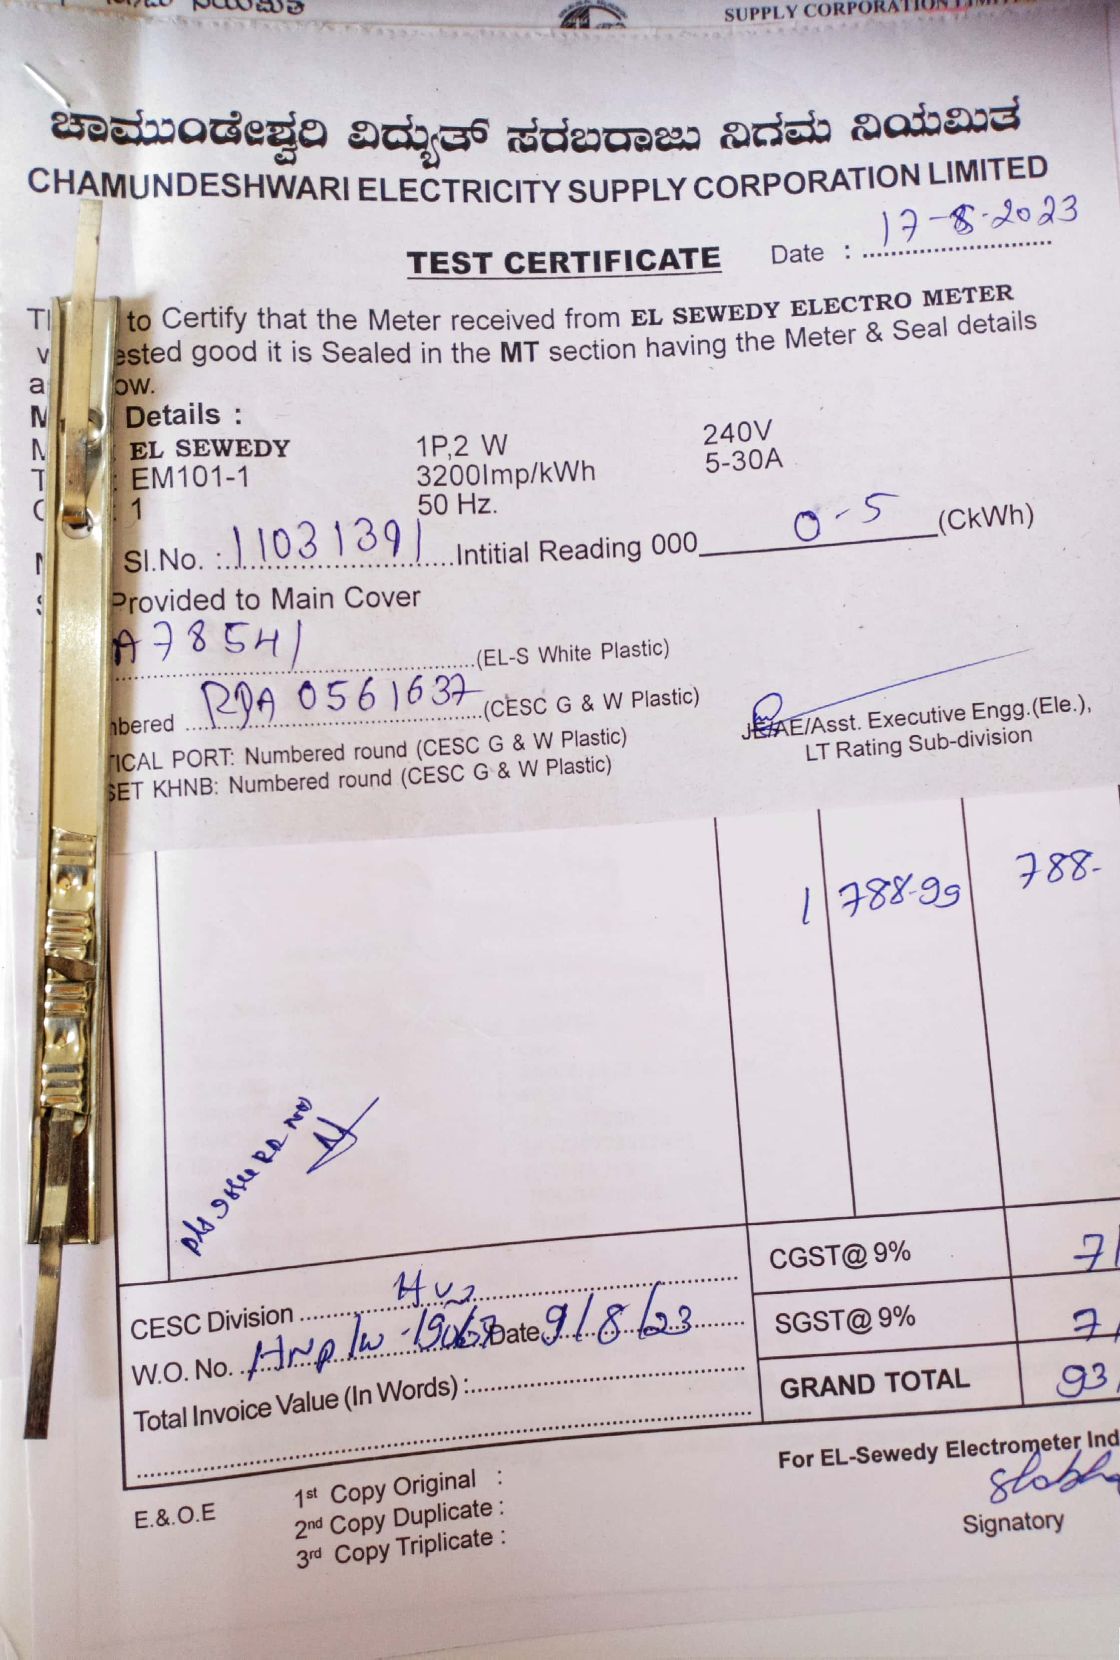 SUPPLY CORPORATION
ಚಾಮುಂಡೇಶ್ವರಿ ವಿದ್ಯುತ್ ಸರಬರಾಜು ನಿಗಮ ನಿಯಮಿತ
CHAMUNDESHWARI ELECTRICITY SUPPLY CORPORATION LIMITED
TEST CERTIFICATE Date : 17-8-2023
to Certify that the Meter received from EL SEWEDY ELECTRO METER
good it is Sealed in the MT section having the Meter & Seal details
Details :
EL SEWEDY 1P,2 W 240V
EM101-1 3200Imp/kWh 5-30A
: 1 50 Hz.
Sl.No. : 11031391 Intitial Reading 000 0-5 (CkWh)
Provided to Main Cover
A78541 (EL-S White Plastic)
0561637 (CESC G & W Plastic)
JE/AE/Asst. Executive Engg.(Ele.),
LT Rating Sub-division
PORT: Numbered round (CESC G & W Plastic)
KHNB: Numbered round (CESC G & W Plastic)
1 788-99 788-
CGST@ 9% 7
SGST@ 9% 7
GRAND TOTAL 93
CESC Division
W.O. No. Date 9/8/23
Total Invoice Value (In Words) :
For EL-Sewedy Electrometer
Signatory
E.&.O.E
1st Copy Original :
2nd Copy Duplicate :
3rd Copy Triplicate :